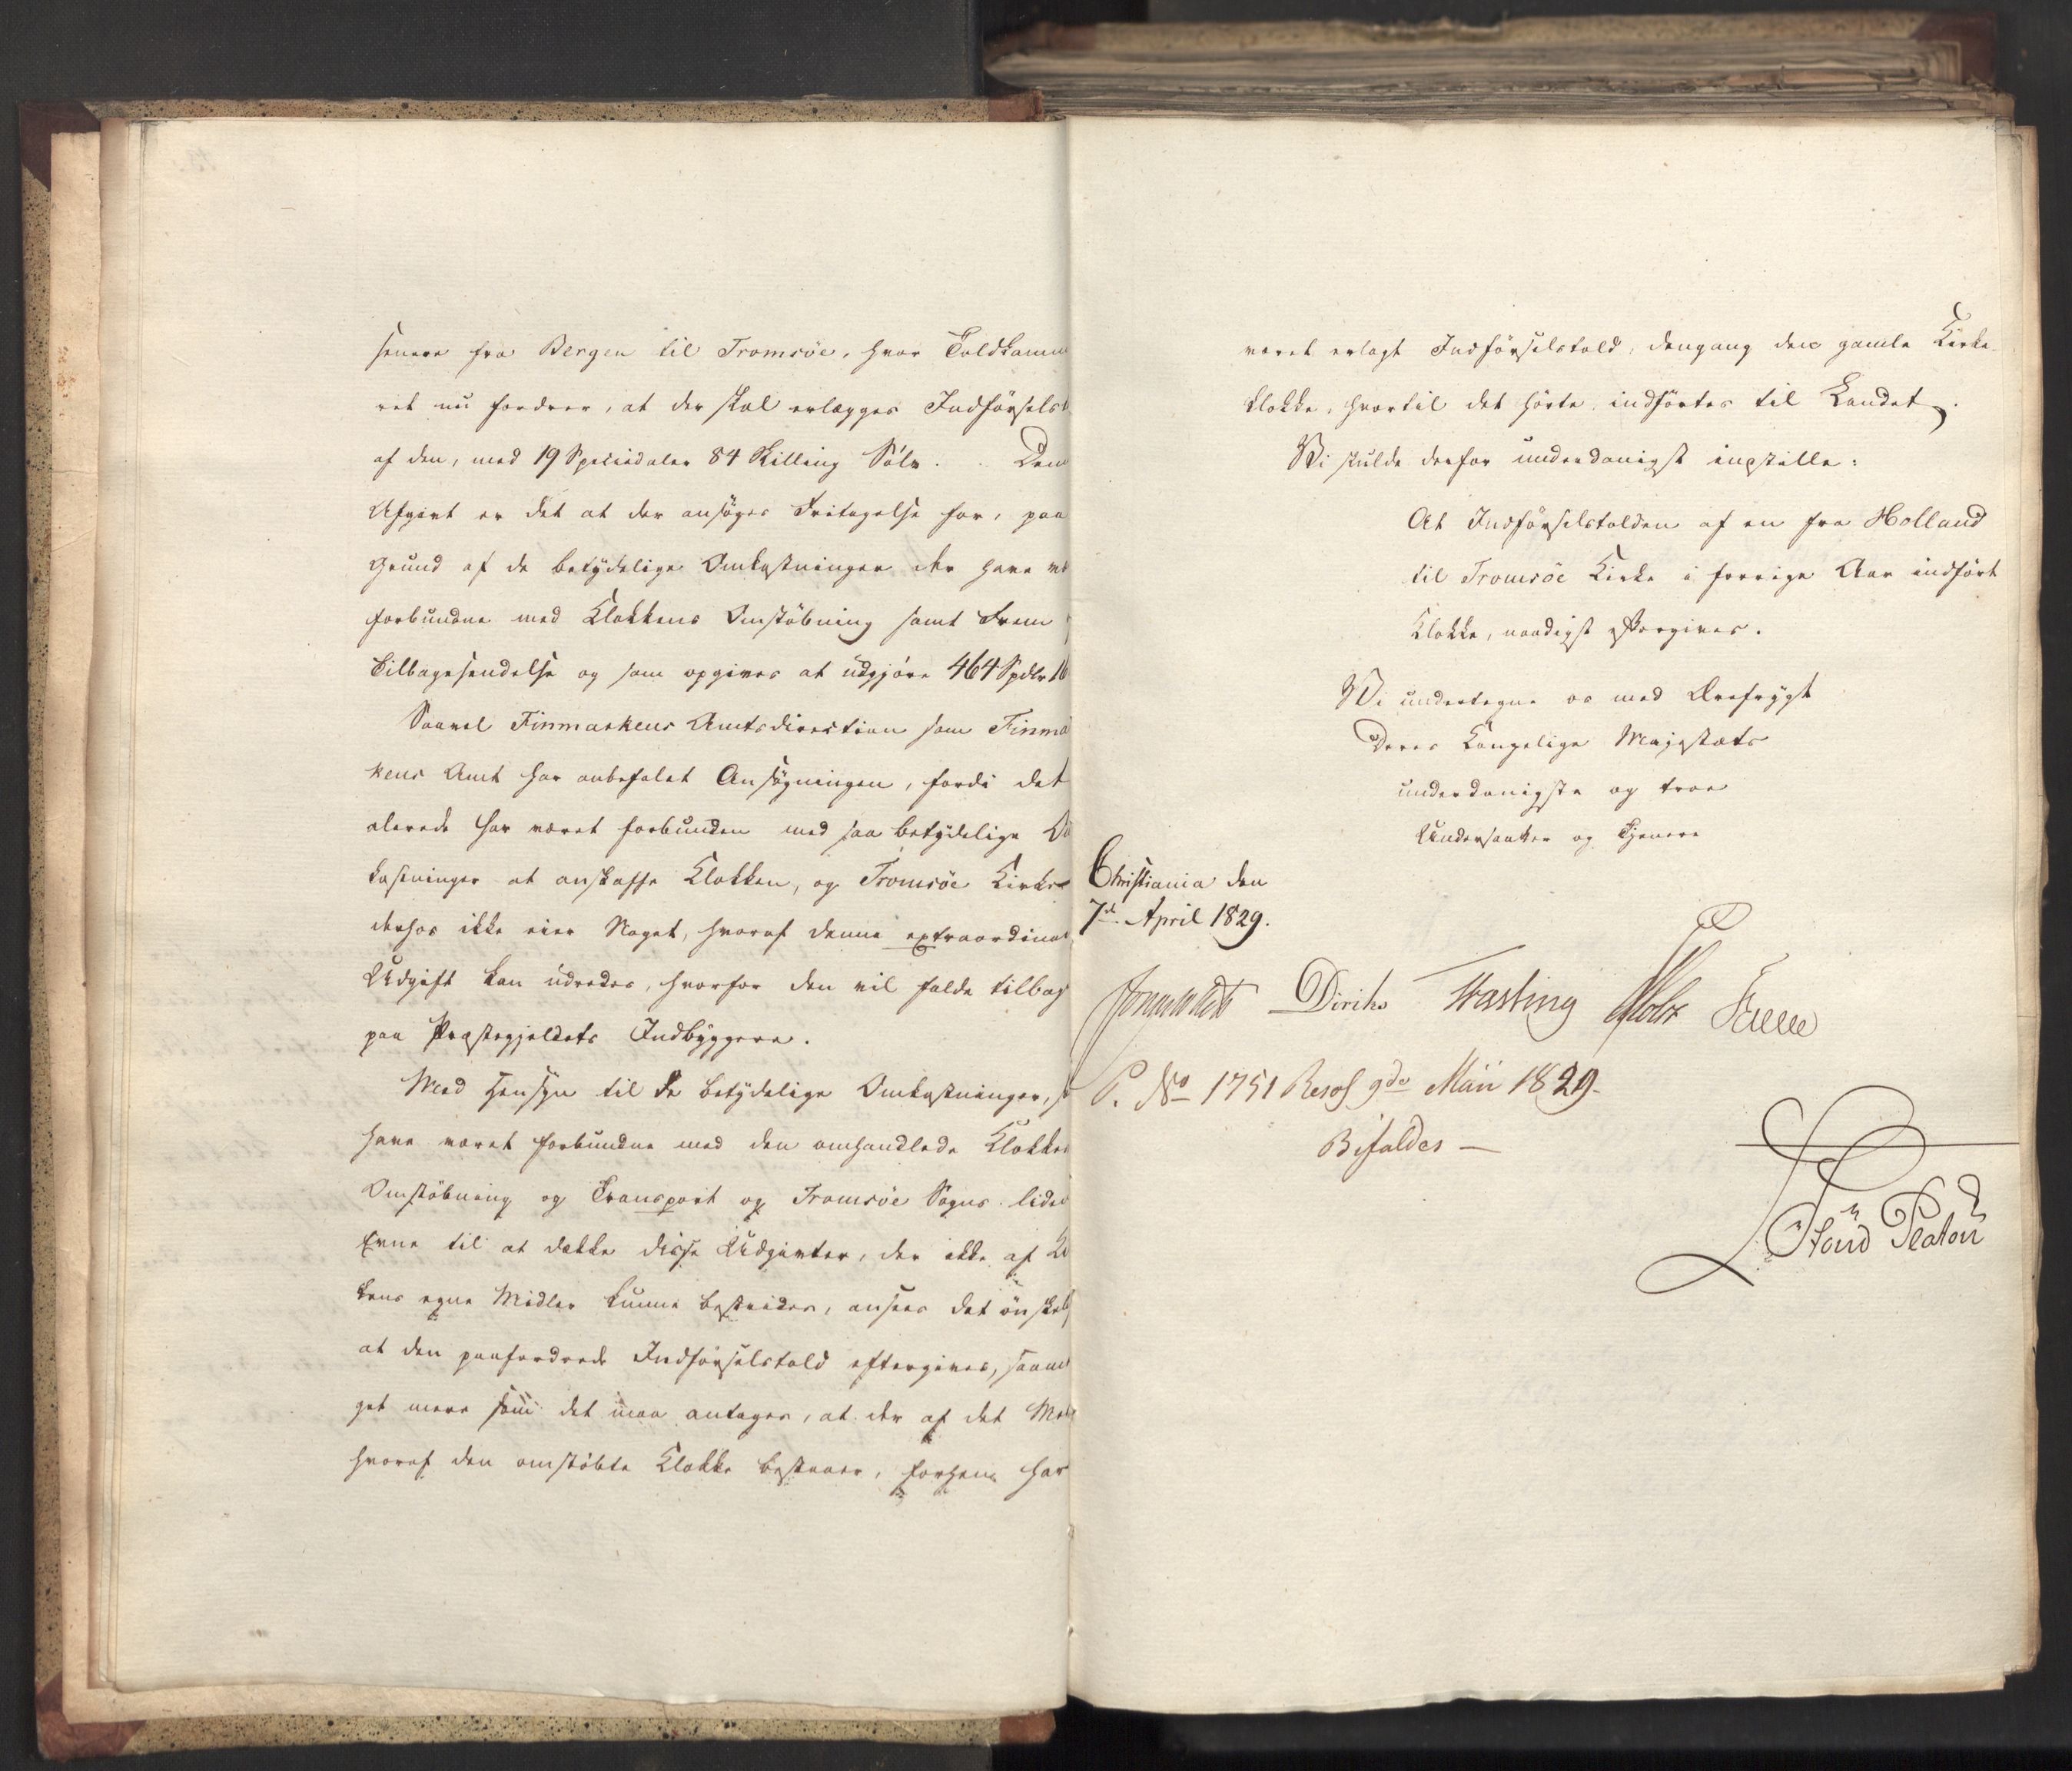 senere fra Bergen til Tromsöe, hvor Toldkamm
ret nu fordrer, at der skal erlægges Indförselst
af den, med 19 Speciedaler 84 Skilling Sölv. Den
Afgivt er det at der ansöges Fritagelse for, paa
Grund af de betydelige Omkostninger der have væ
forbundne med Klokkens Omstöbning samt Frem
Tilbagesendelse og som opgives at udgjöre 464 Spdlr 16
Saavel Finmarkens Amtsdirection som Finma
kens Amt har anbefalet Ansögningen, fordi det
alerede har været forbunden med saa betydelige O
kostninger at anskaffe Klokken, og Tromsöe Kirke
derhos ikke eier Noget, hvoraf denne extraordinai
Udgift kan udredes, hvorfor den vil falde tilbag
paa Præstegjeldets Indbyggere.
Med Hensyn til de betydelige Omkostninger, s
have været forbundne med den omhandlede Klokkes
Omstöbning og Transport og Tromsöe Sogns lide
Evne til at dække disse Udgivter, der ikke af Ki
kens egne Midler kunne bestrides, ansees det önskel
at den paafordrede Indförselstold eftergives, saam
get mere som det maa antages, at der af det Me
hvoraf den omstöbte Klokke bestaaer, forhen har
været erlagt Indförselstold, dengang den gamle Kirke-
klokke, hvortil det hörte, indförtes til Landet.
Vi skulde derfor underdanigst indstille:
At Indförselstolden af en fra Holland
til Tromsöe Kirke i forrige Aar indfört
Klokke, naadigst eftergives.
Vi undertegne os med Ærefrygt
Deres Kongelige Majestæts
underdanigste og troe
Undersaatter og Tjenere
Christiania den
7de April 1829.
Jonas Collett Diriks Fasting Holst Falbe
P. No 1751 Resol 9de Maii 1829.
Bifaldes —
Baltzar v. Platen